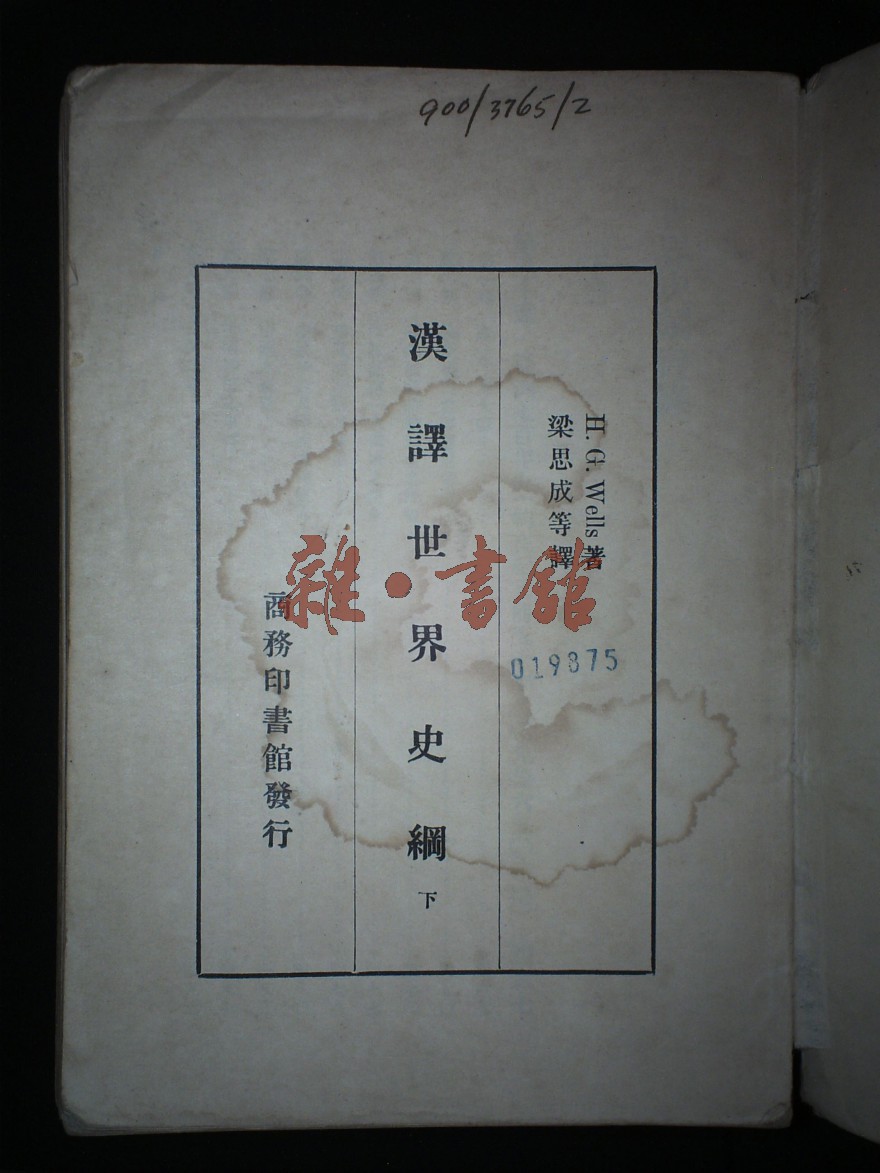 900/3765/2
H. G. Wells著
梁思成等譯
漢譯世界史綱 下
商務印書館發行
019875
雜·書館